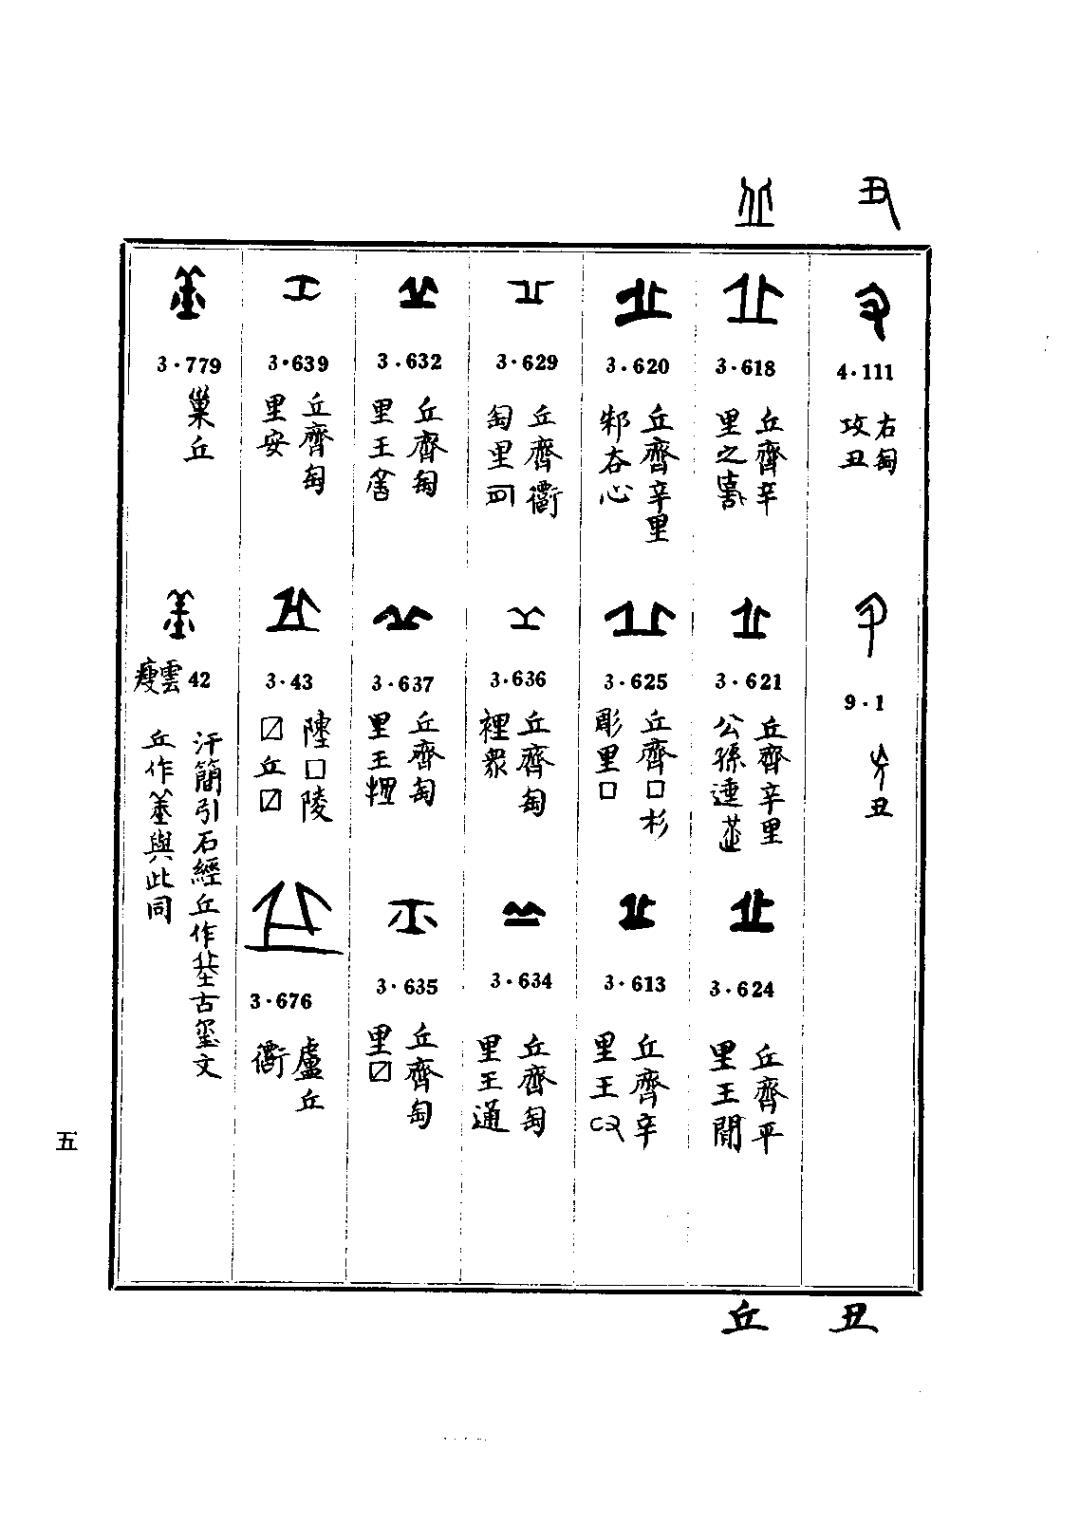 4·111
右匋
攻丑
9·1
丑
3·618
丘齊辛
里之
3·621
丘齊辛里
公孫
3·624
丘齊平
里王閒
3·620
丘齊辛里
心
3·625
丘齊□杉
彫里□
3·613
丘齊辛
里王
3·629
丘齊衢
匋里
3·636
丘齊匋
裡眾
3·634
丘齊匋
里王通
3·632
丘齊匋
里王
3·637
丘齊匋
里王
3·635
丘齊匋
里〼
3·639
丘齊匋
里安
3·43
□陵
〼丘〼
3·676
盧丘
衢
3·779
巢丘
瘦雲 42
汗簡引石經丘作𡊣古璽文
丘作與此同
丑
丘
五